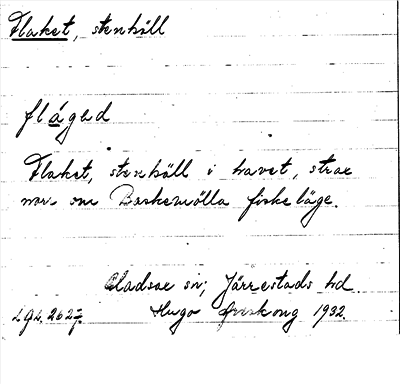 Flaket, stenhäll
flágəd
Flaket, stenhäll i havet, strax
norr om Baskemölla fiskeläge.
Gladsax sn; Järrestads hd.
Hugo Areskoug 1932.